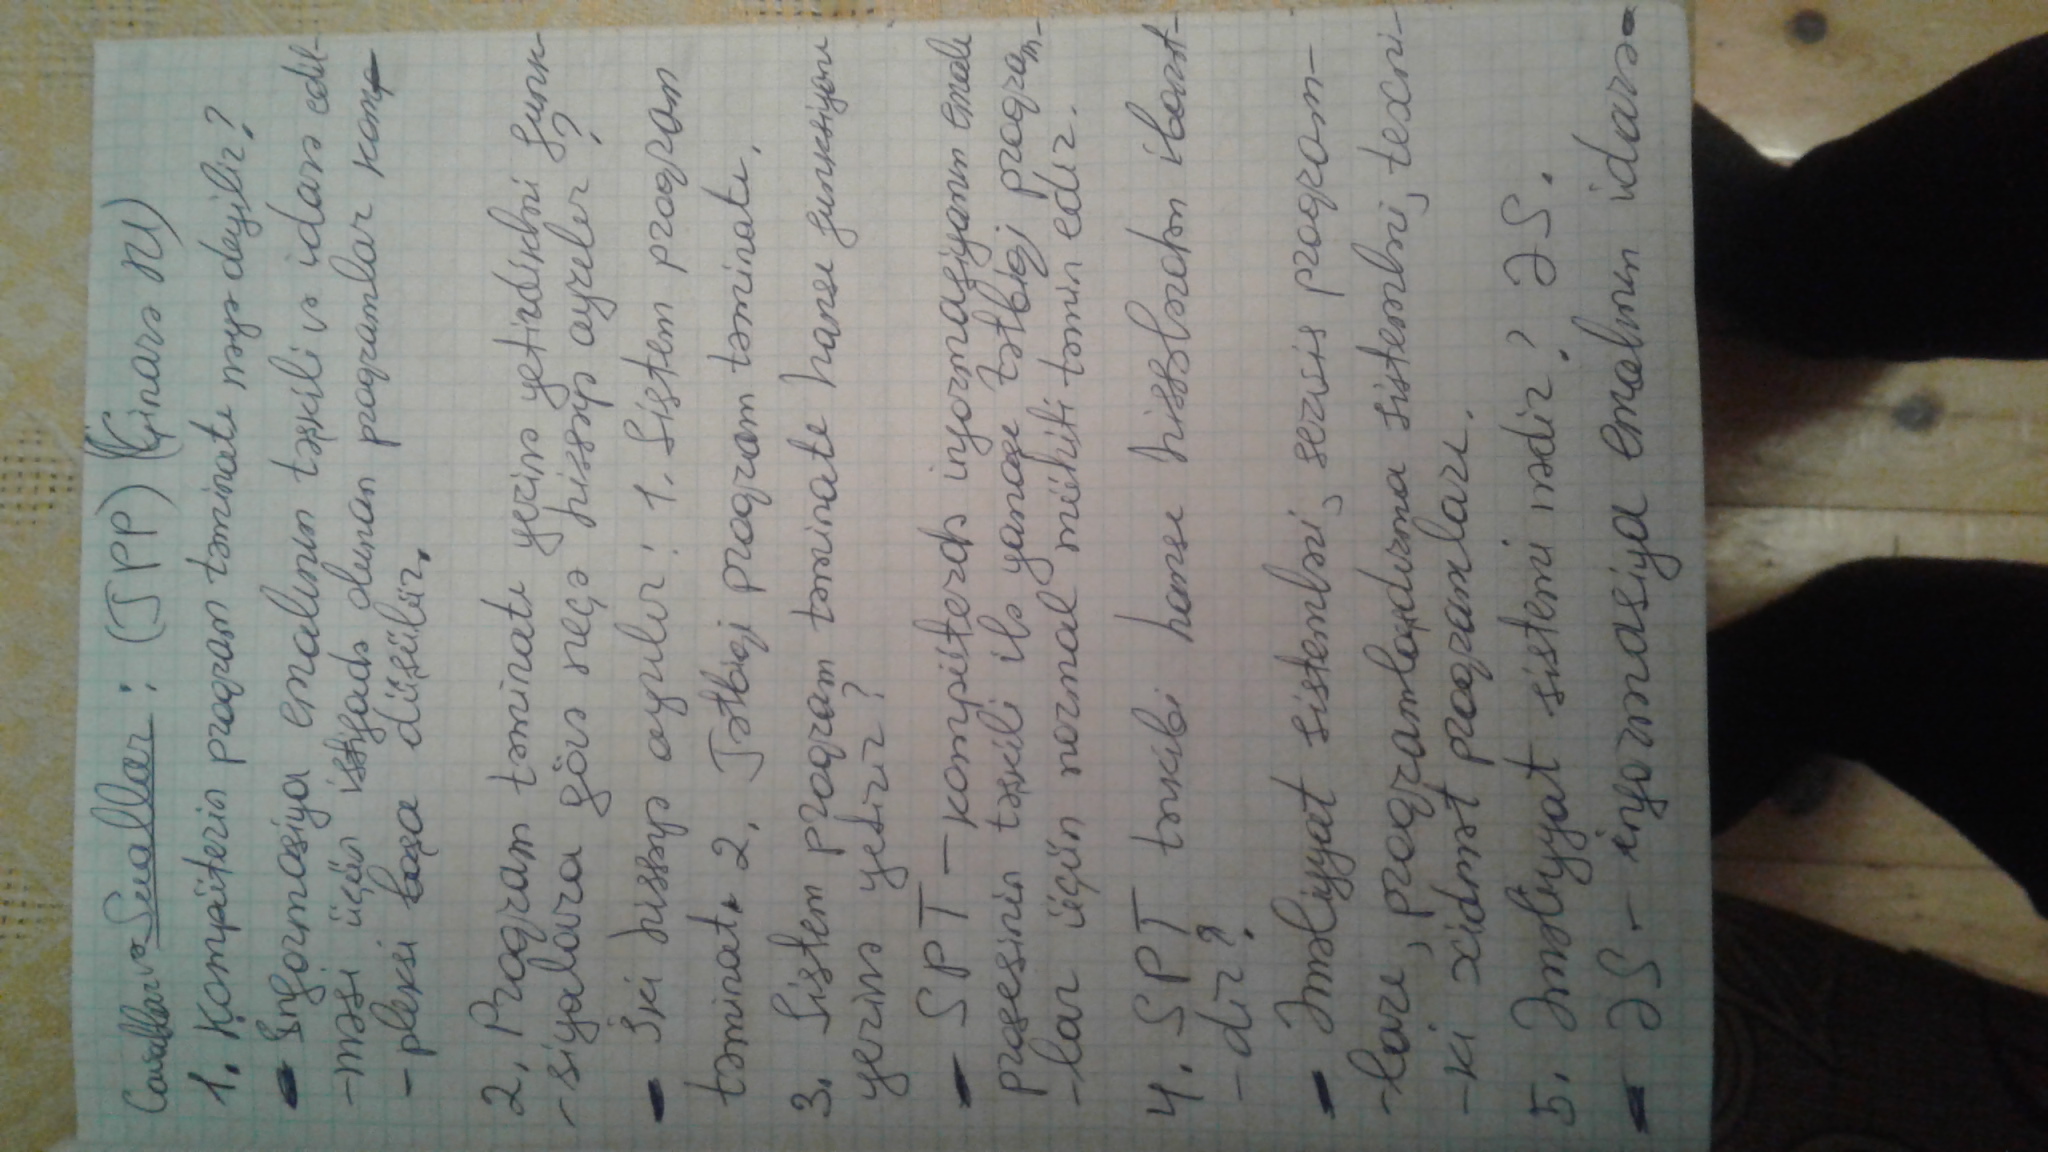 Cavablar və Suallar : (TPP) (Çinarə M)
1. Kompüterin proqram təminatı nəyə deyilir?
- İnformasiya emalının təşkili və idarə edil-
-məsi üçün istifadə olunan proqramlar kom-
-pleksi başa düşülür.
2. Proqram təminatı yerinə yetirdikləri funk-
-siyalara görə neçə hissəyə ayrılır ?
- İki hissəyə ayrılır: 1. Sistem proqram
təminatı 2. Tətbiqi proqram təminatı.
3. Sistem proqram təminatı hansı funksiyanı
yerinə yetirir?
- SPT - kompüterdə informasiyanın emalı
prosesinin təşkili ilə yanaşı tətbiqi proqram-
-lar üçün normal mühiti təmin edir.
4. SPT tərkibi hansı hissələrdən ibarət-
-dir?
- Əməliyyat sistemləri, servis proqram-
-ları, proqramlaşdırma sistemləri, texni-
-ki xidmət proqramları.
5. Əməliyyat sistemi nədir? ƏS.
- ƏS - informasiya emalının idarə-